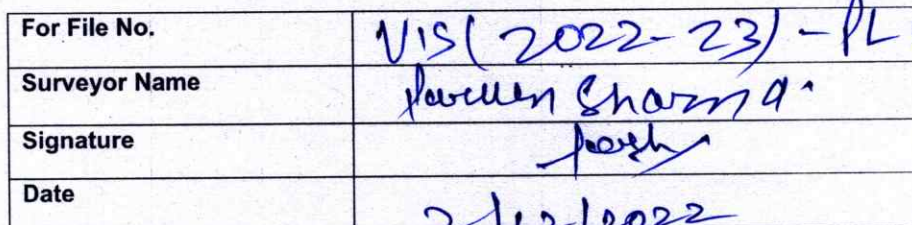 For File No. VIS(2022-23)-PL
Surveyor Name Parveen Sharma
Signature
Date /12/2022